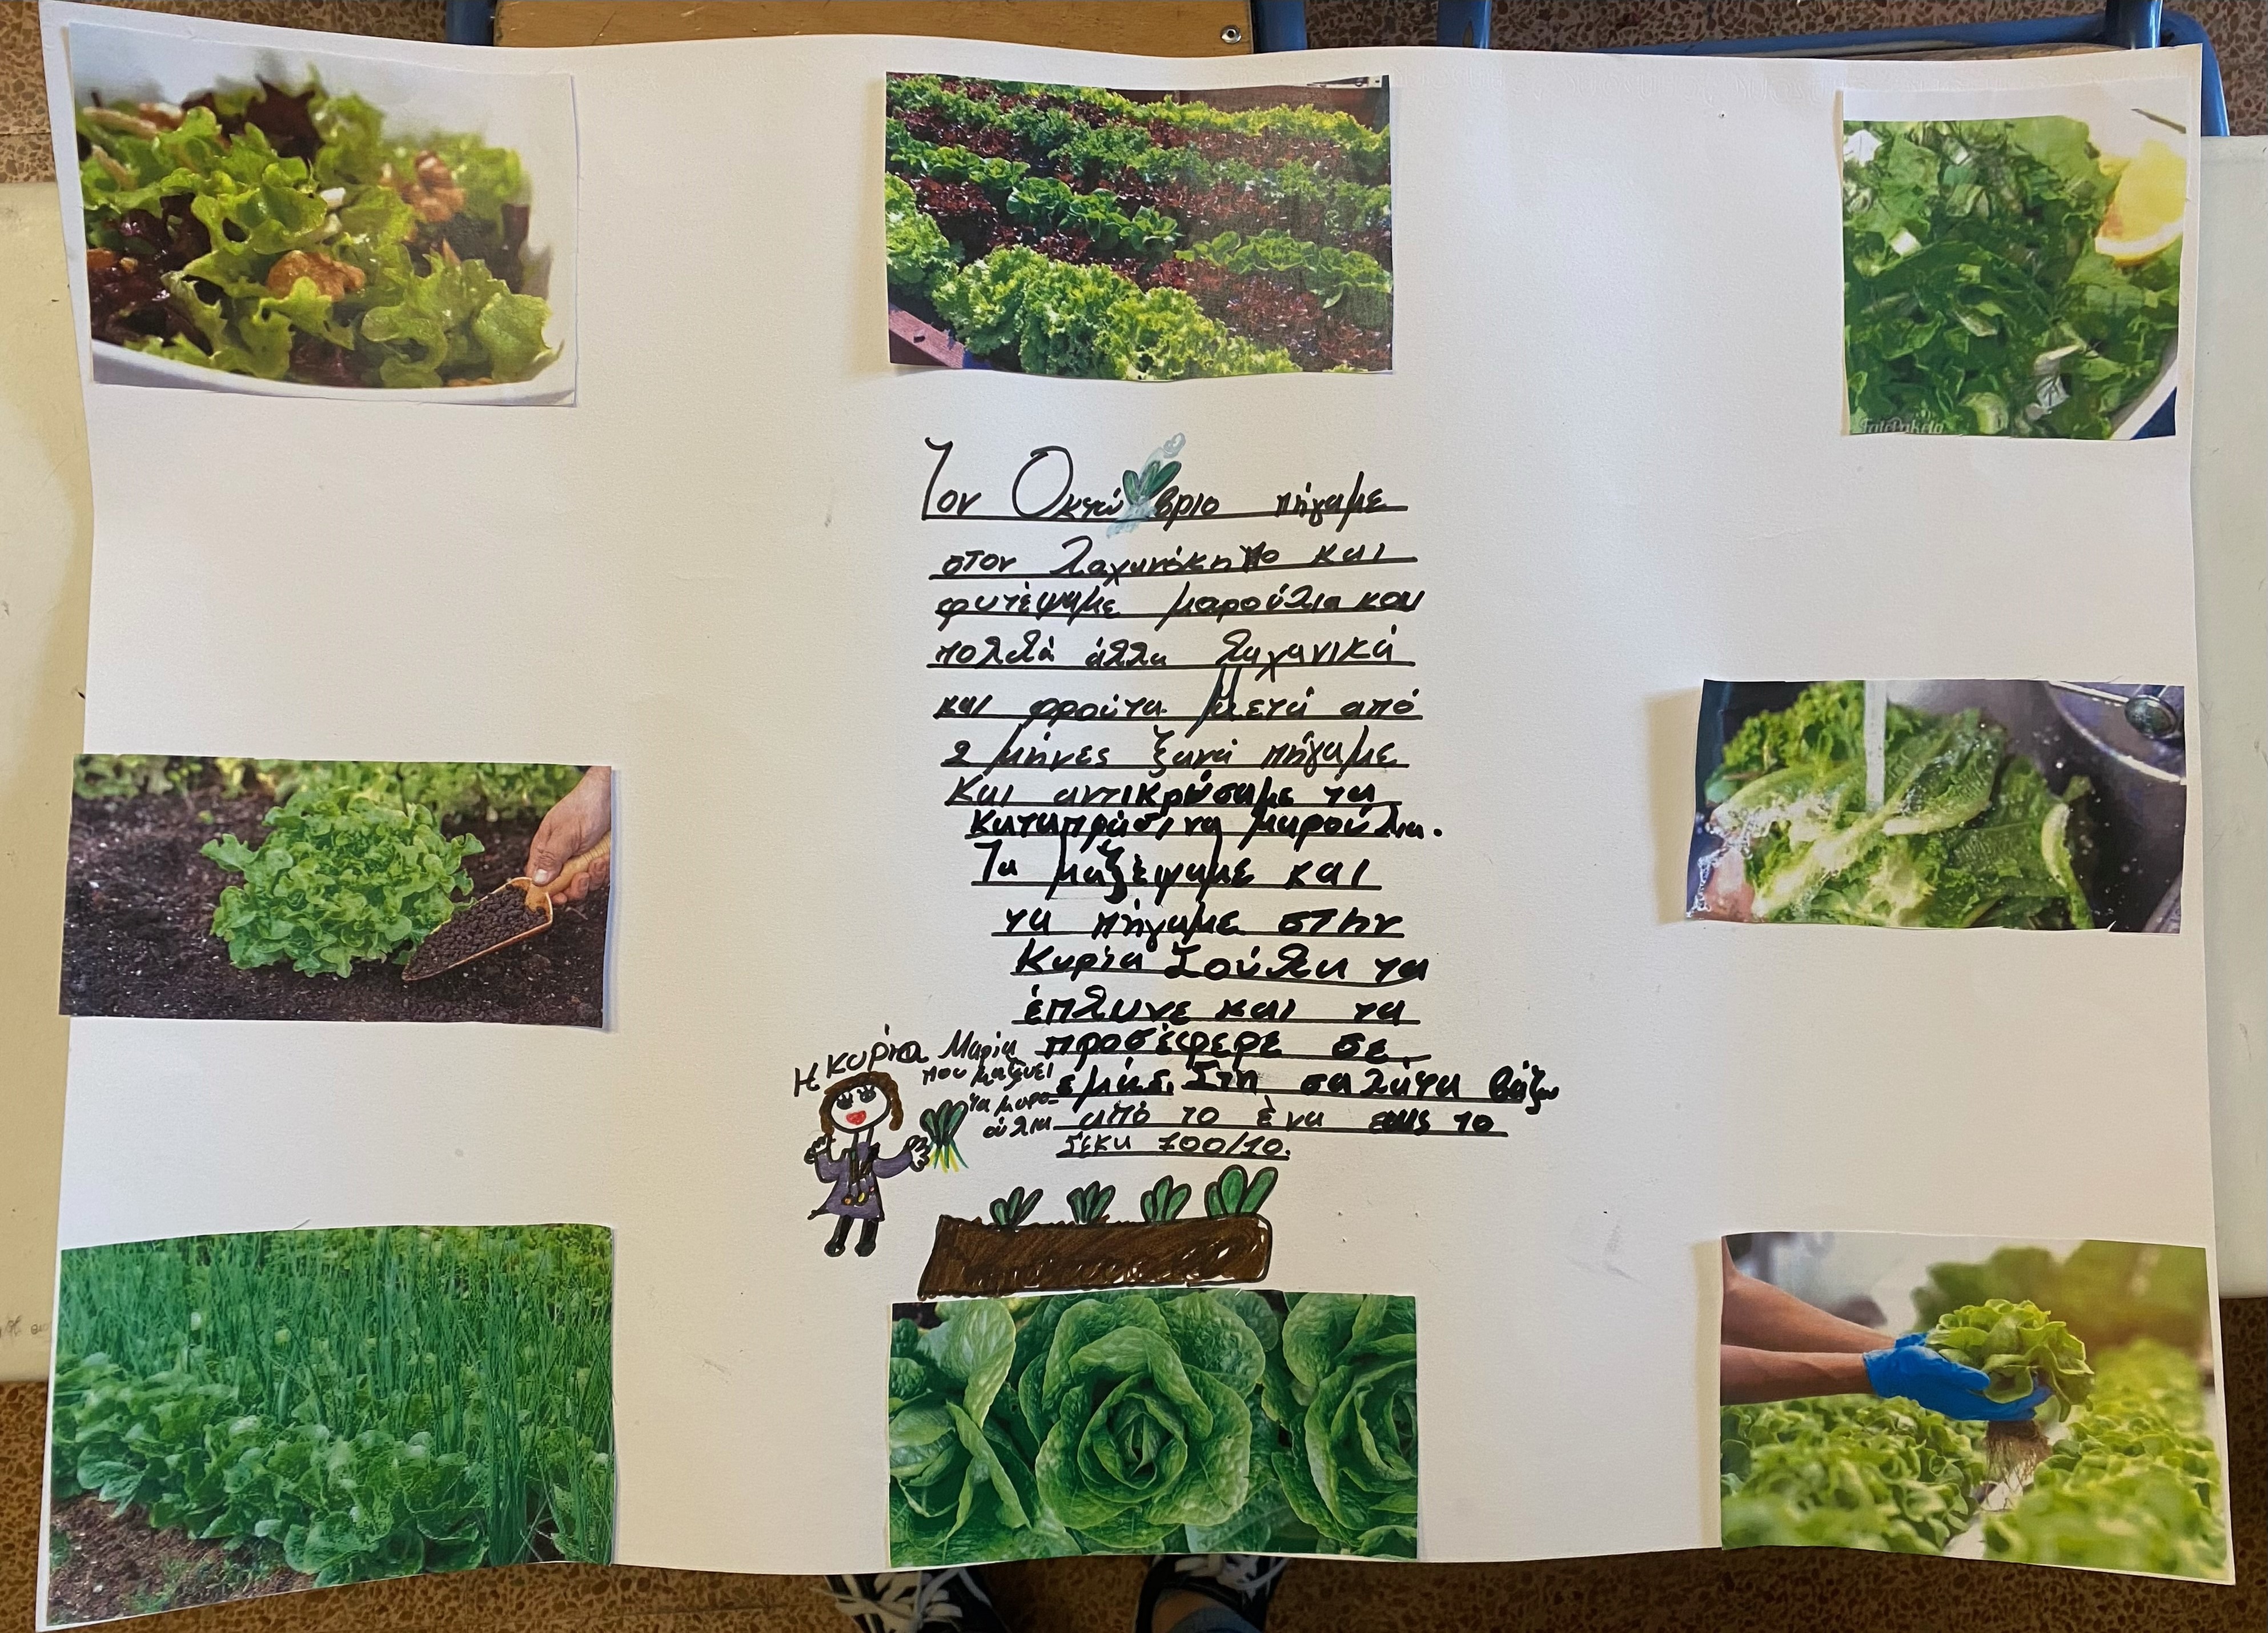 Τον Οκτώβριο πήγαμε
στον λαχανόκηπο και
φυτέψαμε μαρούλια και
πολλά άλλα λαχανικά
και φρούτα. Μετά από
2 μήνες ξανά πήγαμε
Και αντικρύσαμε τα
καταπράσινα μαρούλια.
Τα μαζέψαμε και
τα πήγαμε στην
Κυρία Σούλα τα
έπλυνε και τα
προσέφερε σε
εμάς. Στη σαλάτα βάζω
από το ένα εως το
δεκα 100/10.
Η κυρία Μαρία
που μαζευει
τα μαρο-
ούλια